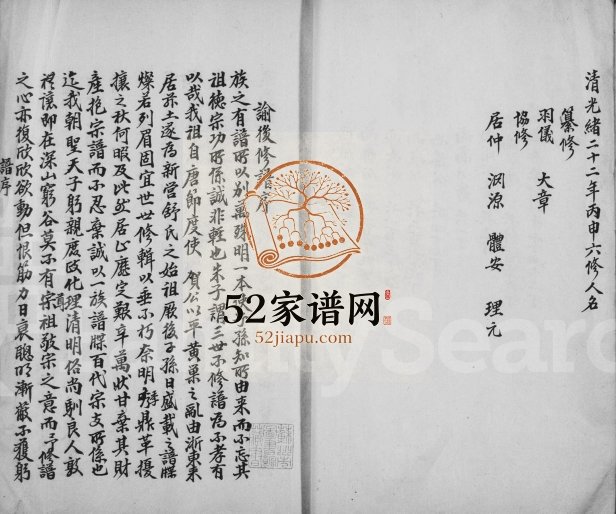 清光緒二十二年丙申六修人名
纂修
羽儀 大章
協修
居仲 潤源 體安 理元
諭後修譜序
族之有譜所以別萬殊明一本使子孫知所由来而不忘其
祖德宗功所係誠非輕也朱子謂三世不修譜為不孝有
以哉我祖自唐節度使 賀公以平黃巢之亂由浙東来
居茲土遂為新営舒氏之始祖厥後子孫日盛載之譜牒
燦若列眉固宜世世修輯以垂不朽奈明季鼎革擾
攘之秋何暇及此然居正廳定艱辛萬狀甘棄其財
產抱宗譜而不忍棄誠以一族譜牒百代宗支所係也
迄我朝聖天子躬親庶政化理清明俗尚馴良人敦
禮讓即在深山窮谷莫不有宗祖敬宗之意而予修譜
之心亦復欣欣欲動但恨筋力日衰聰明漸嚴不獲躬
譜序
52家谱网
52jiapu.com